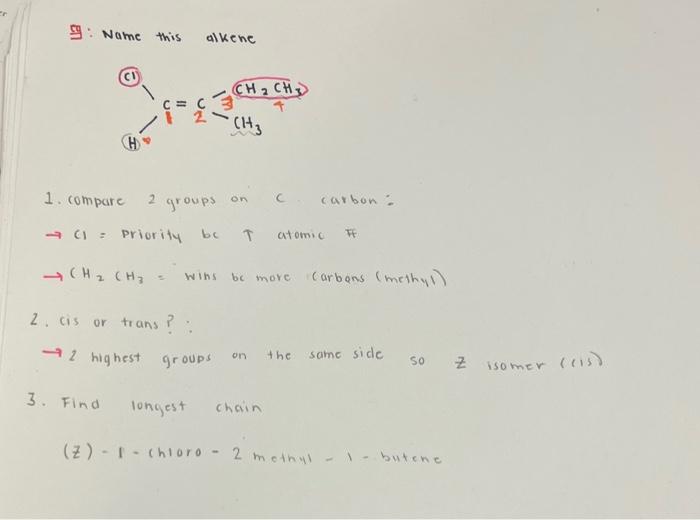 eg: Name this alkene
Cl
CH2CH3
C = C 3 4
1 2
CH3
H
1. compare 2 groups on C carbon:
→ Cl = Priority bc ↑ atomic #
→ CH2CH3 = wins bc more carbons (methyl)
2. cis or trans?:
→ 2 highest groups on the same side so Z isomer (cis)
3. Find longest chain
(Z) - 1 - chloro - 2 methyl - 1 - butene